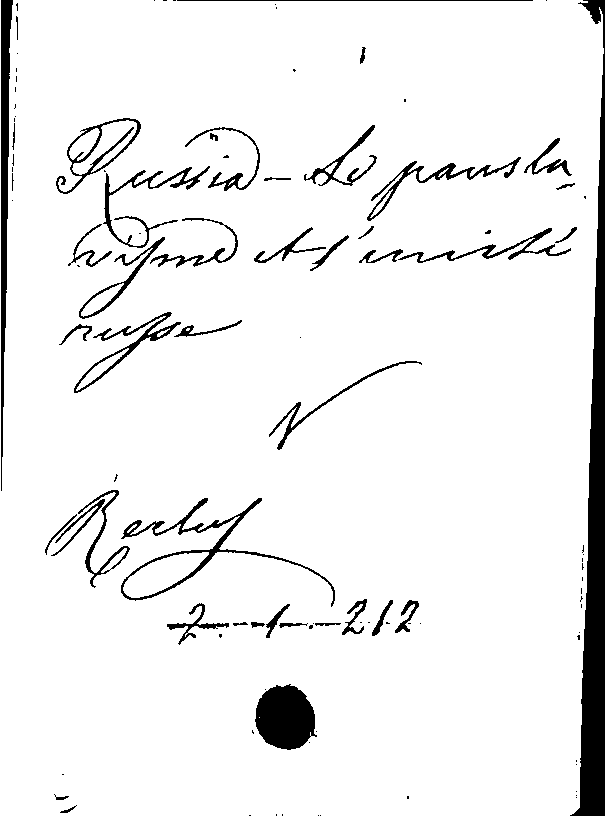 Russia - Le pansla-
visme et l'unité
russe
Berlus
2. 1. 212